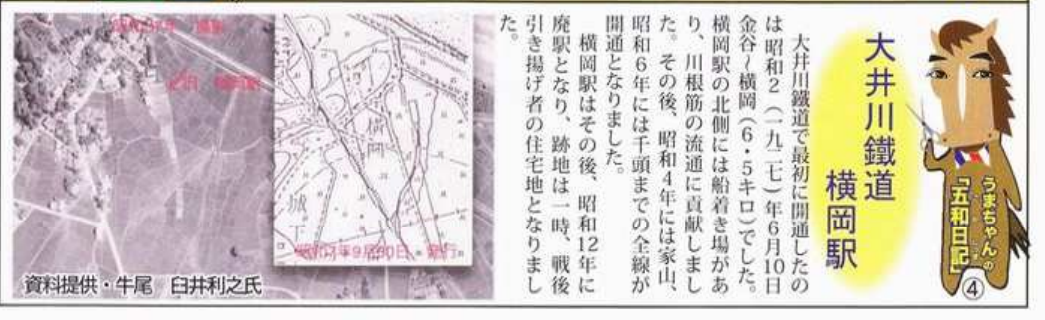 うまちゃんの
「五和日記」
④
大井川鐵道
横岡駅
大井川鐵道で最初に開通したの
は昭和２（一九二七）年６月10日
金谷～横岡（６・５キロ）でした。
横岡駅の北側には船着き場があ
り、川根筋の流通に貢献しまし
た。その後、昭和４年には家山、
昭和６年には千頭までの全線が
開通となりました。
横岡駅はその後、昭和12年に
廃駅となり、跡地は一時、戦後
引き揚げ者の住宅地となりまし
た。
横岡
城下
資料提供・牛尾　臼井利之氏